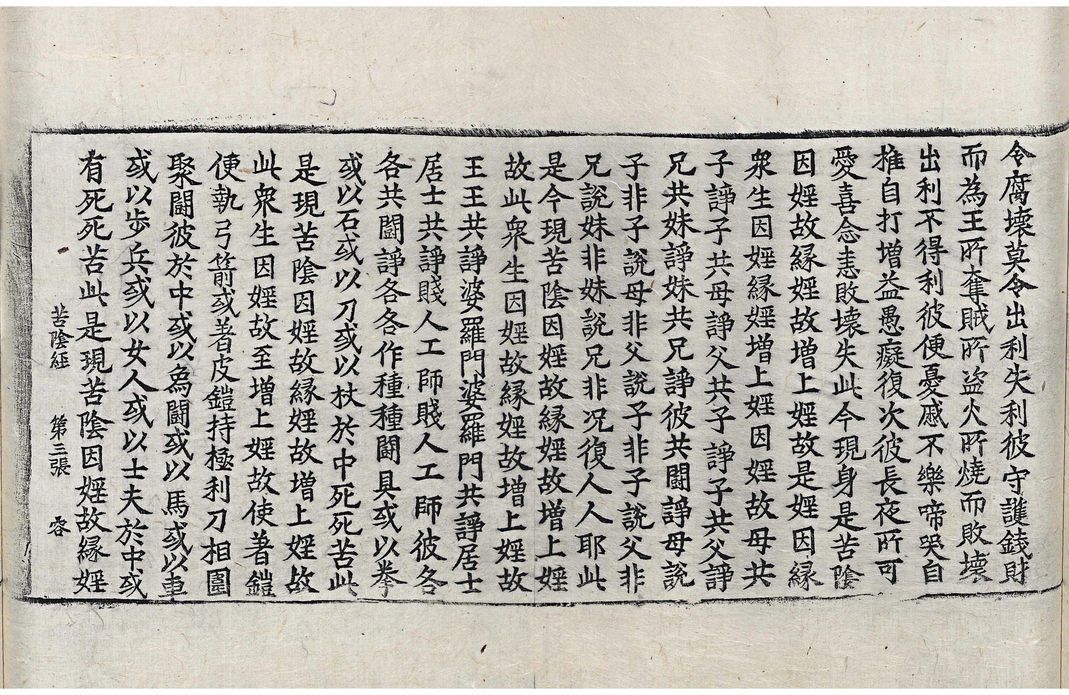 令腐壞莫令出利失利彼守護錢財
而為王所奪賊所盜火所燒而敗壞
出利不得利彼便憂慼不樂啼哭自
推自打增益愚癡復次彼長夜所可
愛喜念恚敗壞失此今現身是苦陰
因婬故緣婬故增上婬故是婬因緣
衆生因婬緣婬增上婬因婬故母共
子諍子共母諍父共子諍子共父諍
兄共妹諍妹共兄諍彼共鬪諍母說
子非子說母非父說子非子說父非
兄說妹非妹說兄非况復人人耶此
是今現苦陰因婬故緣婬故增上婬
故此衆生因婬故緣婬故增上婬故
王王共諍婆羅門婆羅門共諍居士
居士共諍賤人工師賤人工師彼各
各共鬪諍各各作種種鬪具或以拳
或以石或以刀或以杖於中死死苦此
是現苦陰因婬故緣婬故增上婬故
此衆生因婬故至增上婬故使著鎧
便執弓箭或著皮鎧持極利刀相圍
聚鬪彼於中或以烏鬪或以馬或以車
或以步兵或以女人或以士夫於中或
有死死苦此是現苦陰因婬故緣婬
苦陰經 第三張 容